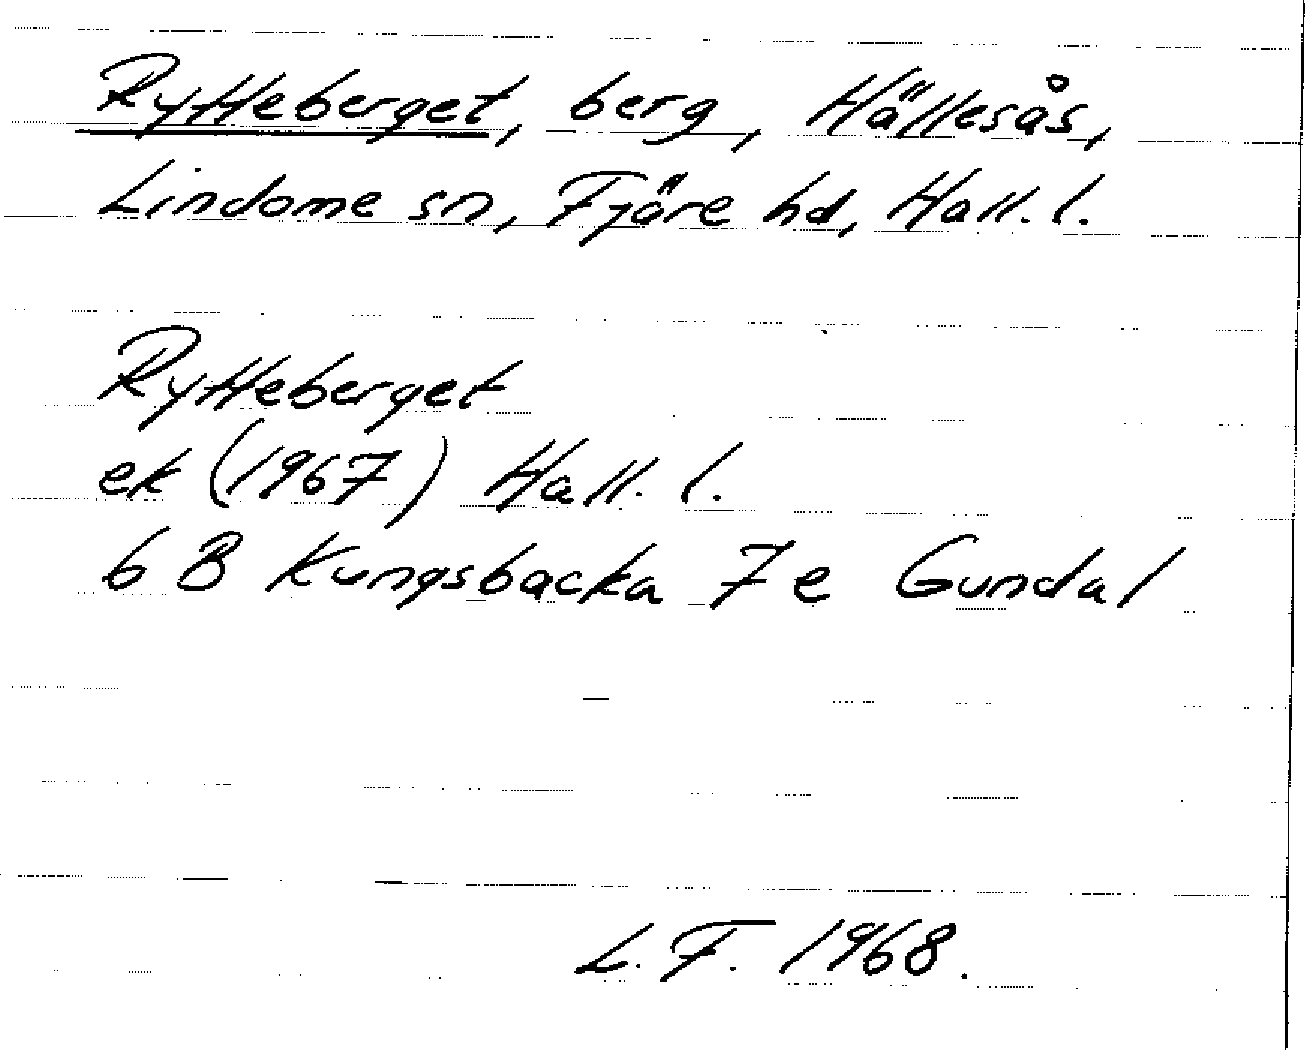 Rytteberget, berg, Hällesås,
Lindome sn, Fjäre hd, Hall. l.
Rytteberget
ek (1967) Hall. l.
6 B Kungsbacka 7 e Gundal
L. F. 1968.